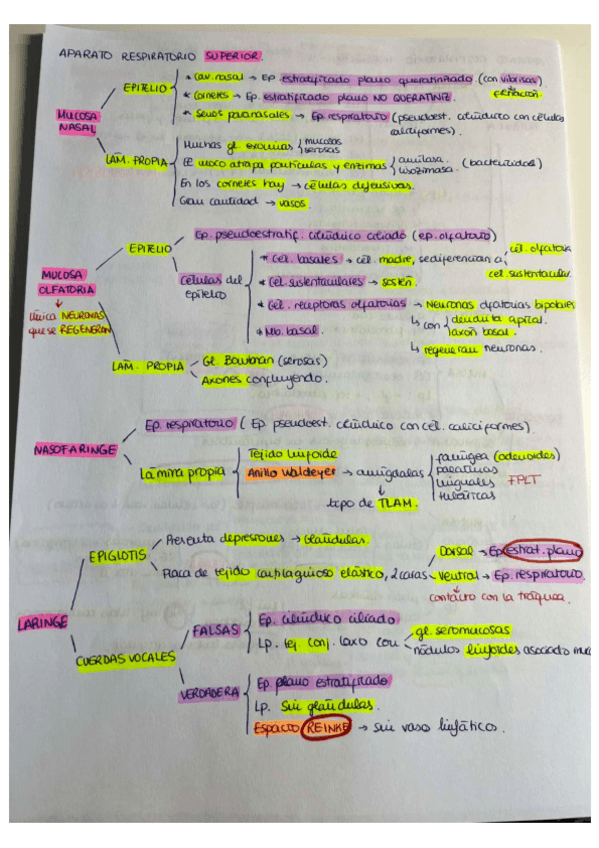 APARATO RESPIRATORIO SUPERIOR.
MUCOSA NASAL
EPITELIO
* Cav. nasal → Ep. estratificado plano queratinizado (con vibrisas)
↳ filtración
* Cornetes → Ep. estratificado plano NO QUERATINIZ.
* Senos paranasales → Ep. respiratorio (pseudoest. cilíndrico con células caliciformes).
LAM. PROPIA
Muchas gl. exocrinas mucosas serosas
El moco atrapa partículas y enzimas amilasa lisozimasa. (bactericidas)
En los cornetes hay → células defensivas.
Gran cantidad → vasos.
MUCOSA OLFATORIA
↓
Única NEURONAS
que se REGENERAN
EPITELIO
Ep. pseudoestratif. cilíndrico ciliado (ep. olfatorio)
Células del epitelio
* Cel. basales → cél. madre, se diferencian a cél. olfatoria cél. sustentacular
* Cel. sustentaculares → sostén
* Cel. receptoras olfatorias → Neuronas olfatorias bipolares
↳ con dendrita apical. axón basal.
↳ regeneran neuronas.
* Mb. basal.
LAM. PROPIA
Gl. Bowman (serosas)
Axones confluyendo.
NASOFARINGE
Ep. respiratorio (Ep. pseudoest. cilíndrico con cel. caliciformes).
Lámina propia
Tejido linfoide
Anillo Waldeyer → amígdalas
faríngea (adenoides)
palatinas
linguales
tubáricas
FPLT
↓
tipo de TLAM.
LARINGE
EPIGLOTIS
Presenta depresiones → Glándulas.
Placa de tejido cartilaginoso elástico, 2 caras
Dorsal → Ep. estrat. plano
Ventral → Ep. respiratorio.
contacto con la tráquea.
CUERDAS VOCALES
FALSAS
Ep. cilíndrico ciliado
Lp. tej. conj. laxo con
gl. seromucosas
nódulos linfoides asociado
VERDADERA
Ep. plano estratificado
Lp. Sin glándulas.
Espacio REINKE → sin vaso linfáticos.